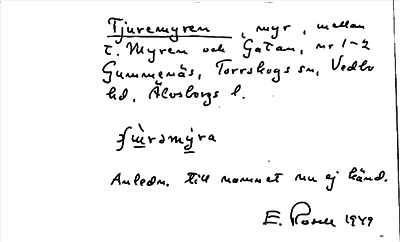 Tjuremyren, myr, mellan
t. Myren och Gatan, nr 1-2
Gummenäs, Torrskogs sn, Vedbo
hd, Älvsborgs l.
Anledn. till namnet nu ej känd.
E. Rosell 1949